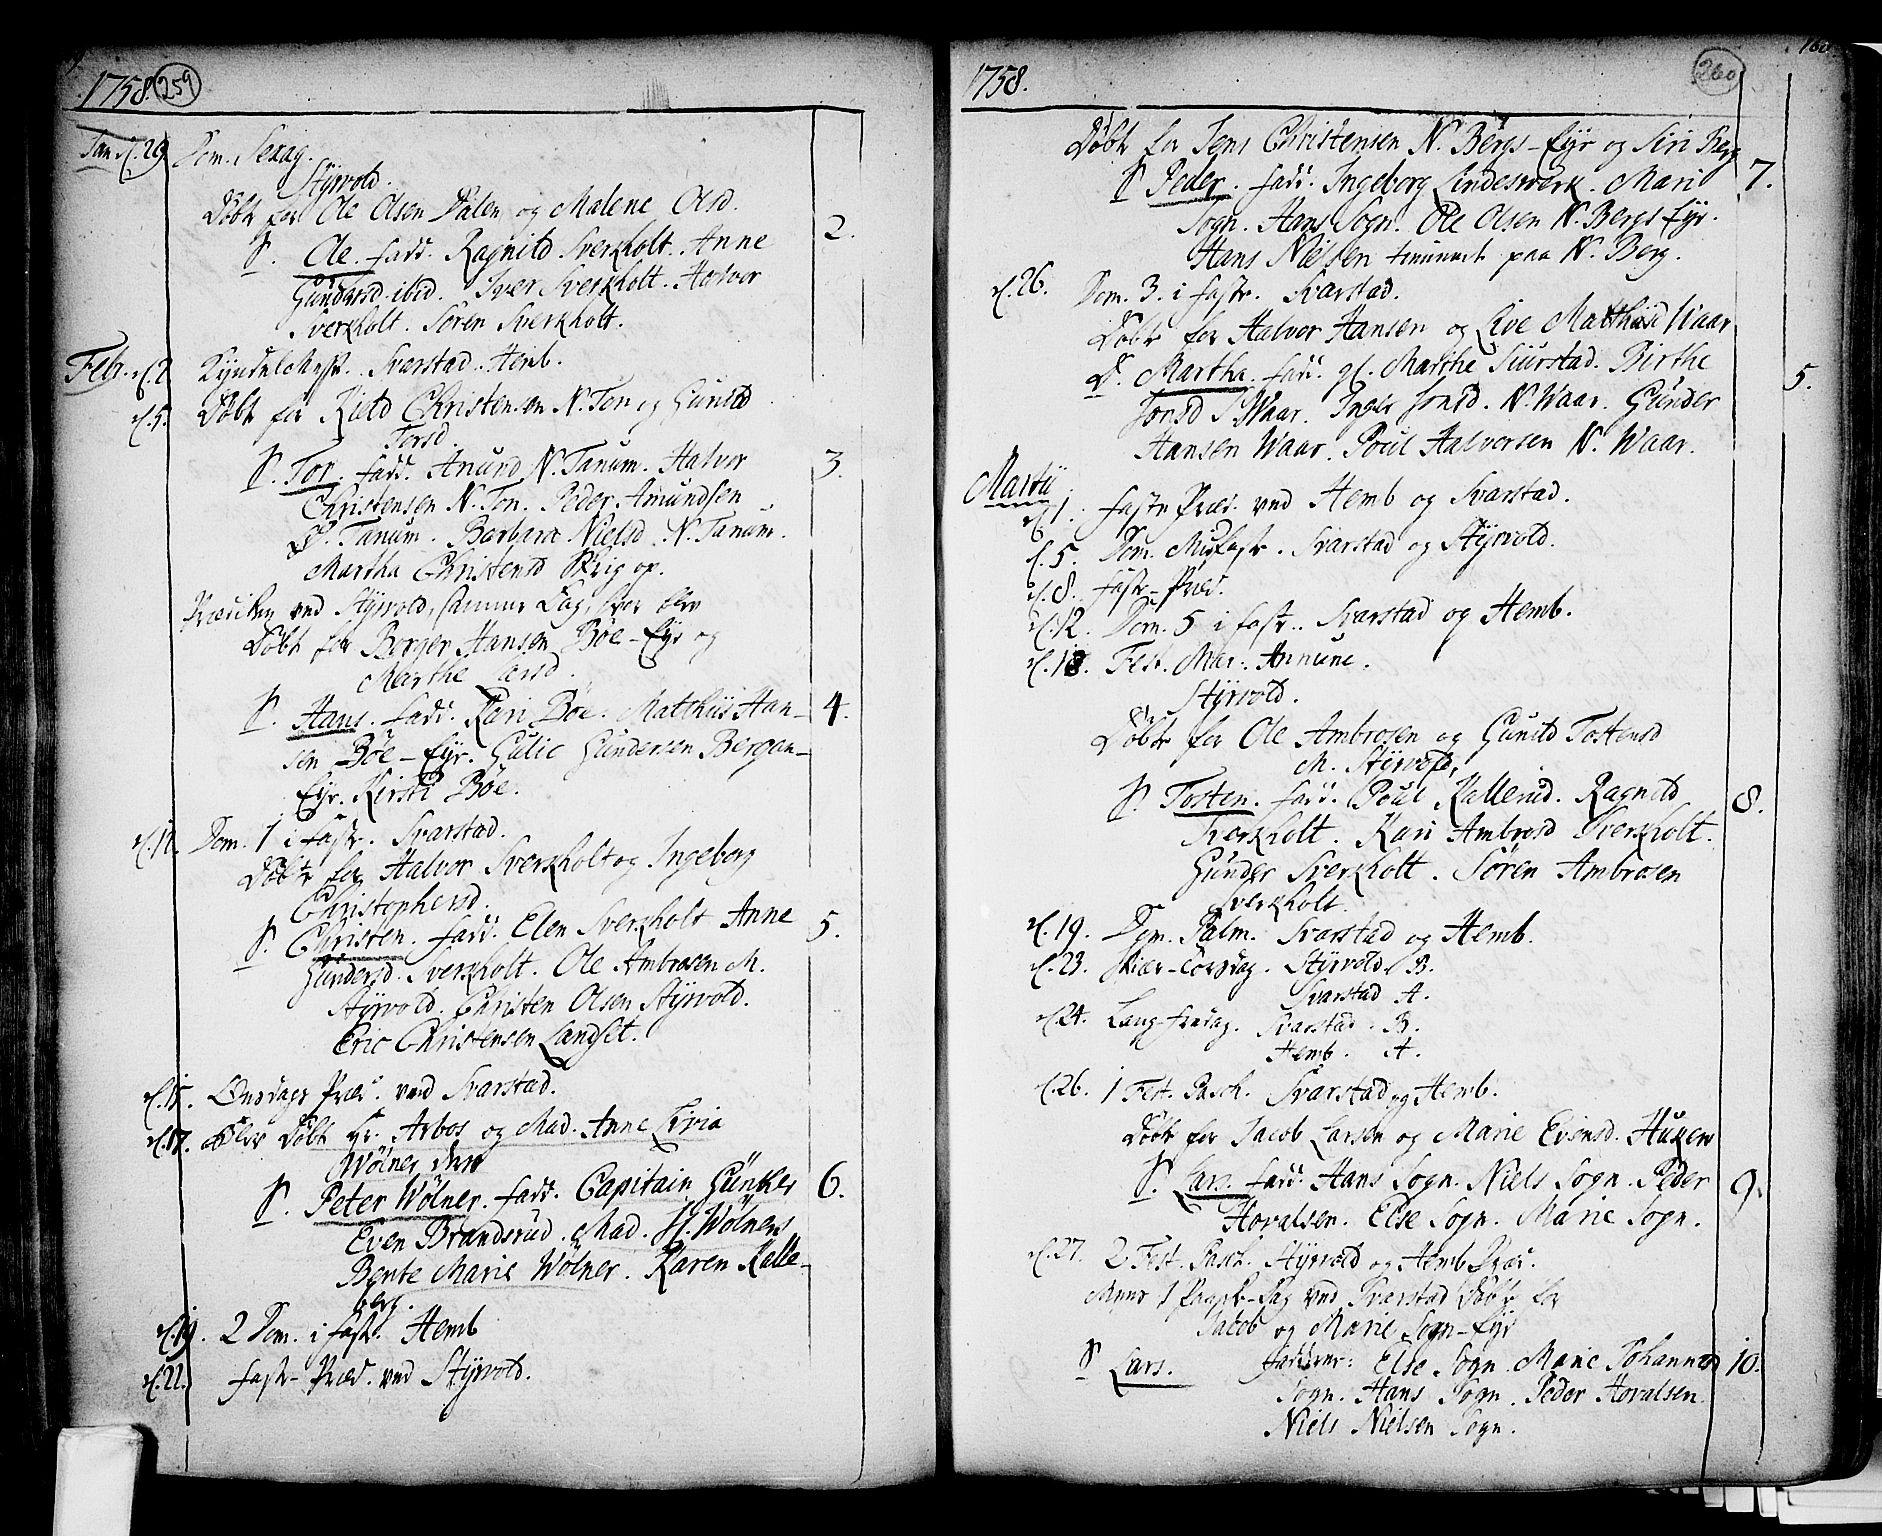 1758. 259
Jan. d. 29 Dom. Sexag.
Styrvold.
Döbt for Ole Olsen Dalen og Malene Olsd.
S. Ole. fadd. Ragnild Sverkholt. Anne 2.
Gundersd. ibid. Iver Sverkholt. Halvor
Sverkholt. Sören Sverkholt.
Febr. d. 2 Kyndelmess. Svarstad. Hemb.
d. 5. Döbt for Kield Christensen N. Ton og Gunild
Torsd.
S. Tor. fadd. Anund N. Tanum. Halvor 3.
Christensen N. Ton. Peder Amundsen
S. Tanum. Barbara Nielsd. N. Tanum.
Martha Christensd.
Prædiken ved Styrvold, samme Dag, hvor blev
Döbt for Berger Hansen Böe-Eyr og
Marthe Larsd.
S. Hans. fadd. Kari Böe. Matthiis Han- 4.
sen Böe-Eyr. Gulic Gundersen Bergan-
Eyr. Kirsti Böe.
d. 12. Dom. 1 i fast. Svarstad.
Döbt for Halvor Sverkholt og Ingeborg
Christophersd.
S. Christen. fadd. Elen Sverkholt Anne 5.
Gundersd. Sverkholt. Ole Ambrosen M.
Styrvold. Christen Olsen Styrvold.
Eric Christensen Landset.
d. 15. Onsdags Præd. ved Svarstad.
d. 17. blev Döbt Hr. Arbos og Mad. Anne Livia
Wölner deres
S. Peter Wölner. fadd. Capitain Günker 6.
Even Brandsrud. Mad. H. Wölners
Bente Marie Wölner. Karen Kalle-
berg.
d. 19. 2 Dom. i fast. Hemb
d. 22. fast-Præd. ved Styrvold.
1758. 260
Döbt for Jens Christensen N. Bergs-Eyr og Siri Berg
S Peder. fadd. Ingeborg Lindeswerk. Mari 7.
Sogn. Hans Sogn. Ole Olsen N. Bergs Eyr.
Hans Nielsen paa N. Berg.
d. 26. Dom. 3. i fast. Svarstad.
Döbt for Halvor Hansen og Live Matthisd Waar
D. Martha. fadd. gl. Marthe Siurstad. Birthe 5.
Jonsd S Waar. Inger Jonsd. N. Waar. Gunder
Hansen Waar. Poul Halvorsen N. Waar.
Martii
d. 1. faste Præd. ved Hemb og Svarstad.
d. 5. Dom. Midfast. Svarstad og Styrvold.
d. 8. fast-Præd.
d. 12. Dom. 5 i fast. Svarstad og Hemb.
d. 18. Fest. Mar. Annunc.
Styrvold.
Döbt for Ole Ambrosen og Gunild Tostensd
M. Styrvold,
S. Tosten. fadd. Poul Kallerud. Ragnild 8.
Sverkholt. Kari Ambrosd Sverkholt.
Gunder Sverkholt. Sören Ambrosen
Sverkholt.
d. 19. Dom. Palm. Svarstad og Hemb.
d. 23. Skiær-Torsdag. Styrvold B.
Svarstad A.
d. 24. Lang-fredag. Svarstad. B.
Hemb. A.
d. 26. 1 Fest. Pasch. Svarstad og Hemb.
Döbt for Jacob Larsen og Marie Evensd.
S. Lars. fadd. Hans Sogn. Niels Sogn. Peder 9.
Hovalsen. Else Sogn. Marie Sogn.
d. 27. 2 Fest. Pasch. Styrvold og Hemb Præd.
1 Paaske-Dag ved Svarstad Döbt for
Jacob og Marie Sogn-Eyr
S Lars. fadderne: Else Sogn. Marie Johannesd 10.
Sogn. Hans Sogn. Peder Hovalsen.
Niels Nielsen Sogn.